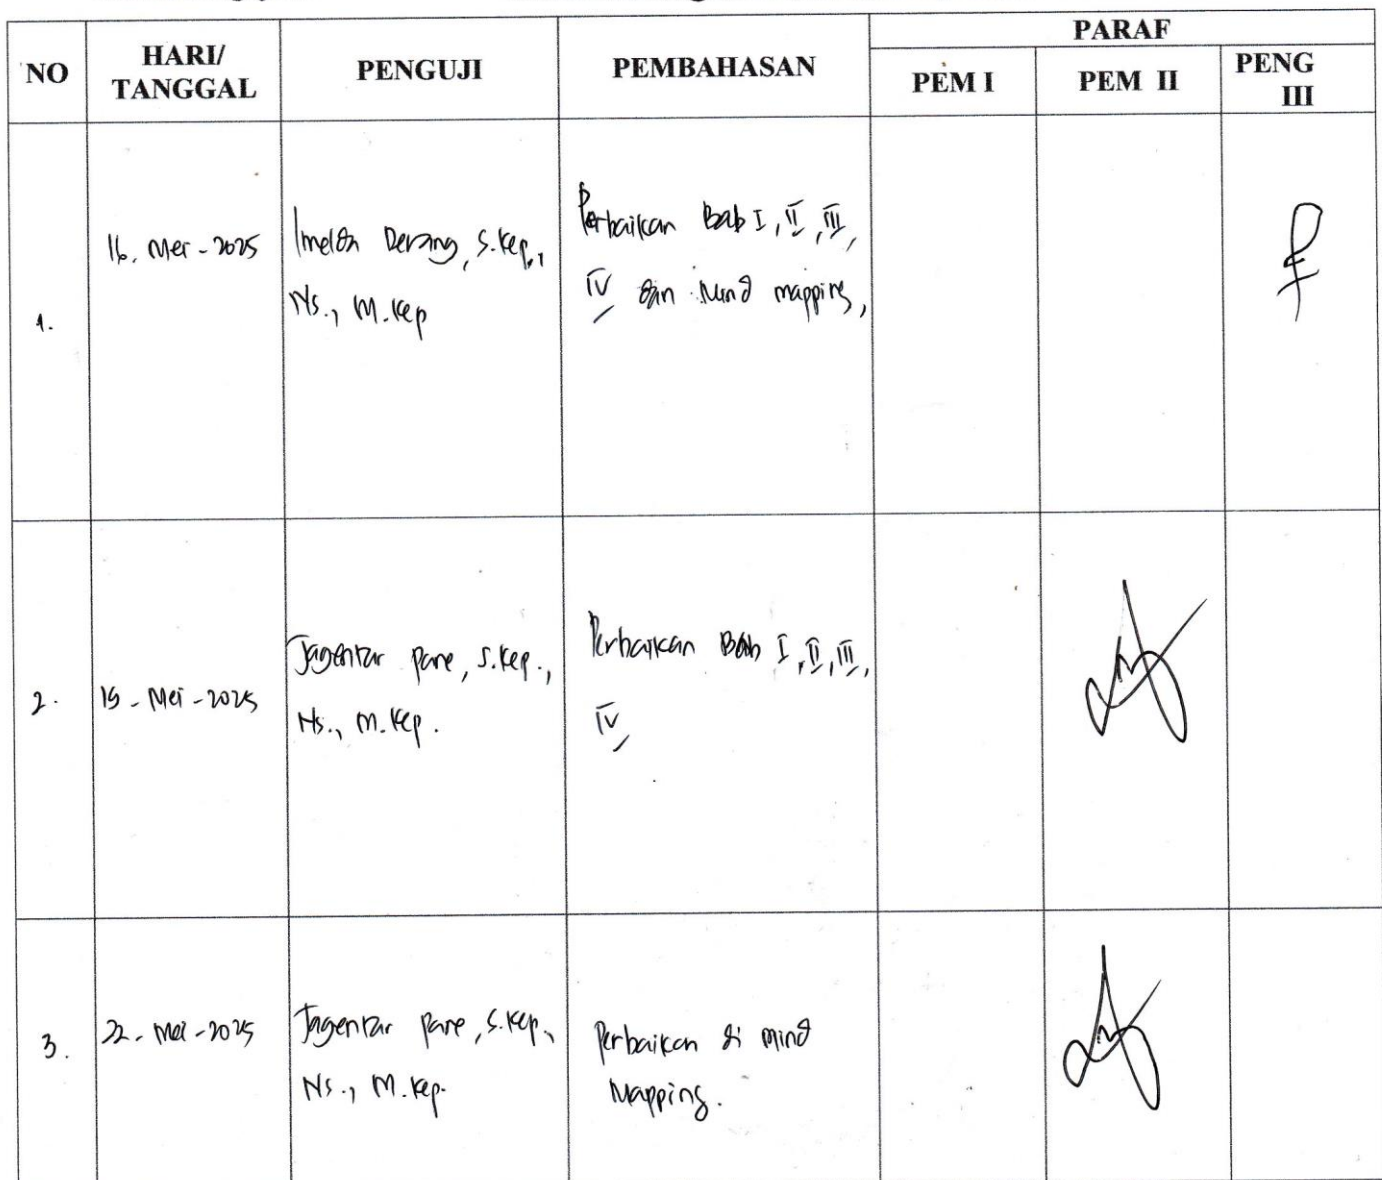 NO
HARI/
TANGGAL
PENGUJI
PEMBAHASAN
PARAF
PEM I
PEM II
PENG
III
1.
16. Mei - 2025
Imelda Derang, S.Kep.,
Ns., M.Kep
Perbaikan Bab I, II, III,
IV dan Mind mapping,
2.
19 - Mei - 2025
Jagentar Pane, S.Kep.,
Ns., M.Kep.
Perbaikan Bab I, II, III,
IV,
3.
22 - Mei - 2025
Jagentar Pane, S.Kep.,
Ns., M.Kep.
Perbaikan di mind
Mapping.